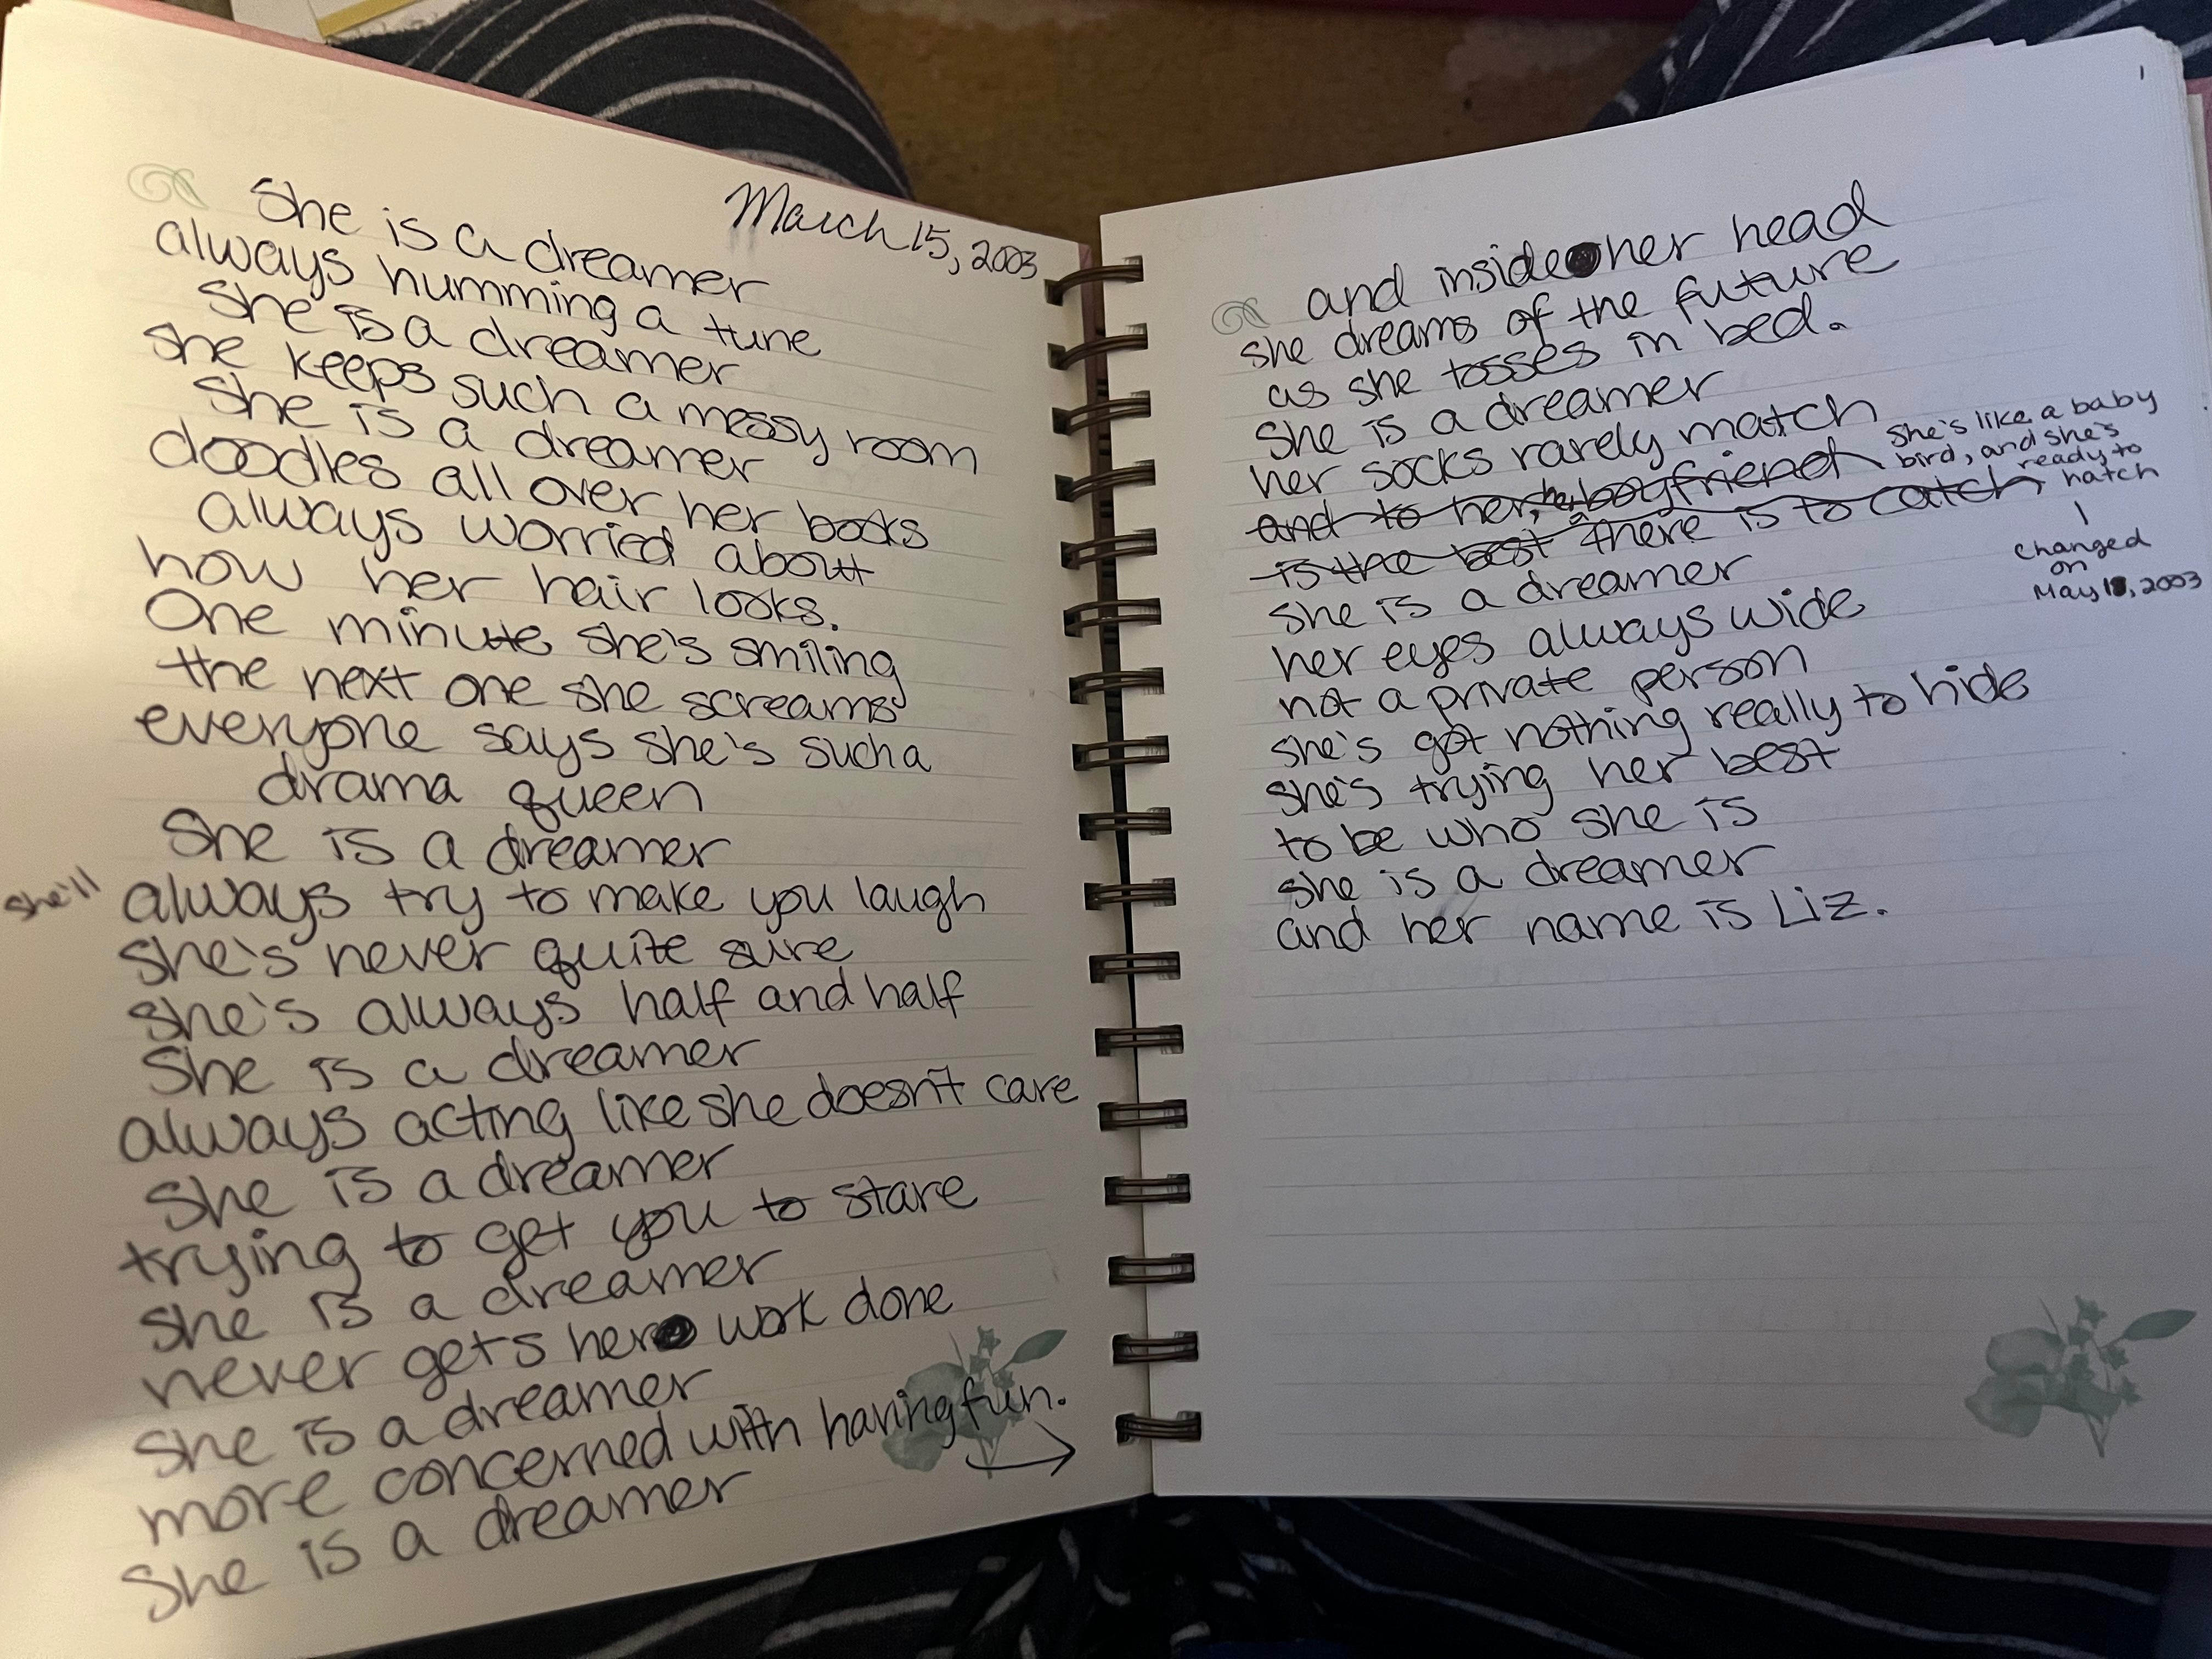 March 15, 2003
She is a dreamer
always humming a tune
She is a dreamer
she keeps such a messy room
She is a dreamer
doodles all over her books
always worried about
how her hair looks.
One minute she's smiling
the next one she screams
everyone says she's such a
drama queen
She is a dreamer
she'll always try to make you laugh
she's never quite sure
she's always half and half
She is a dreamer
always acting like she doesn't care
She is a dreamer
trying to get you to stare
she is a dreamer
never gets her work done
she is a dreamer
more concerned with having fun.
She is a dreamer
and inside her head
she dreams of the future
as she tosses in bed.
She is a dreamer
her socks rarely match
and to her, her boyfriend
is the best there is to catch
She's like a baby
bird, and she's
ready to
hatch
changed
on
May 18, 2003
she is a dreamer
her eyes always wide
not a private person
she's got nothing really to hide
she's trying her best
to be who she is
she is a dreamer
and her name is Liz.